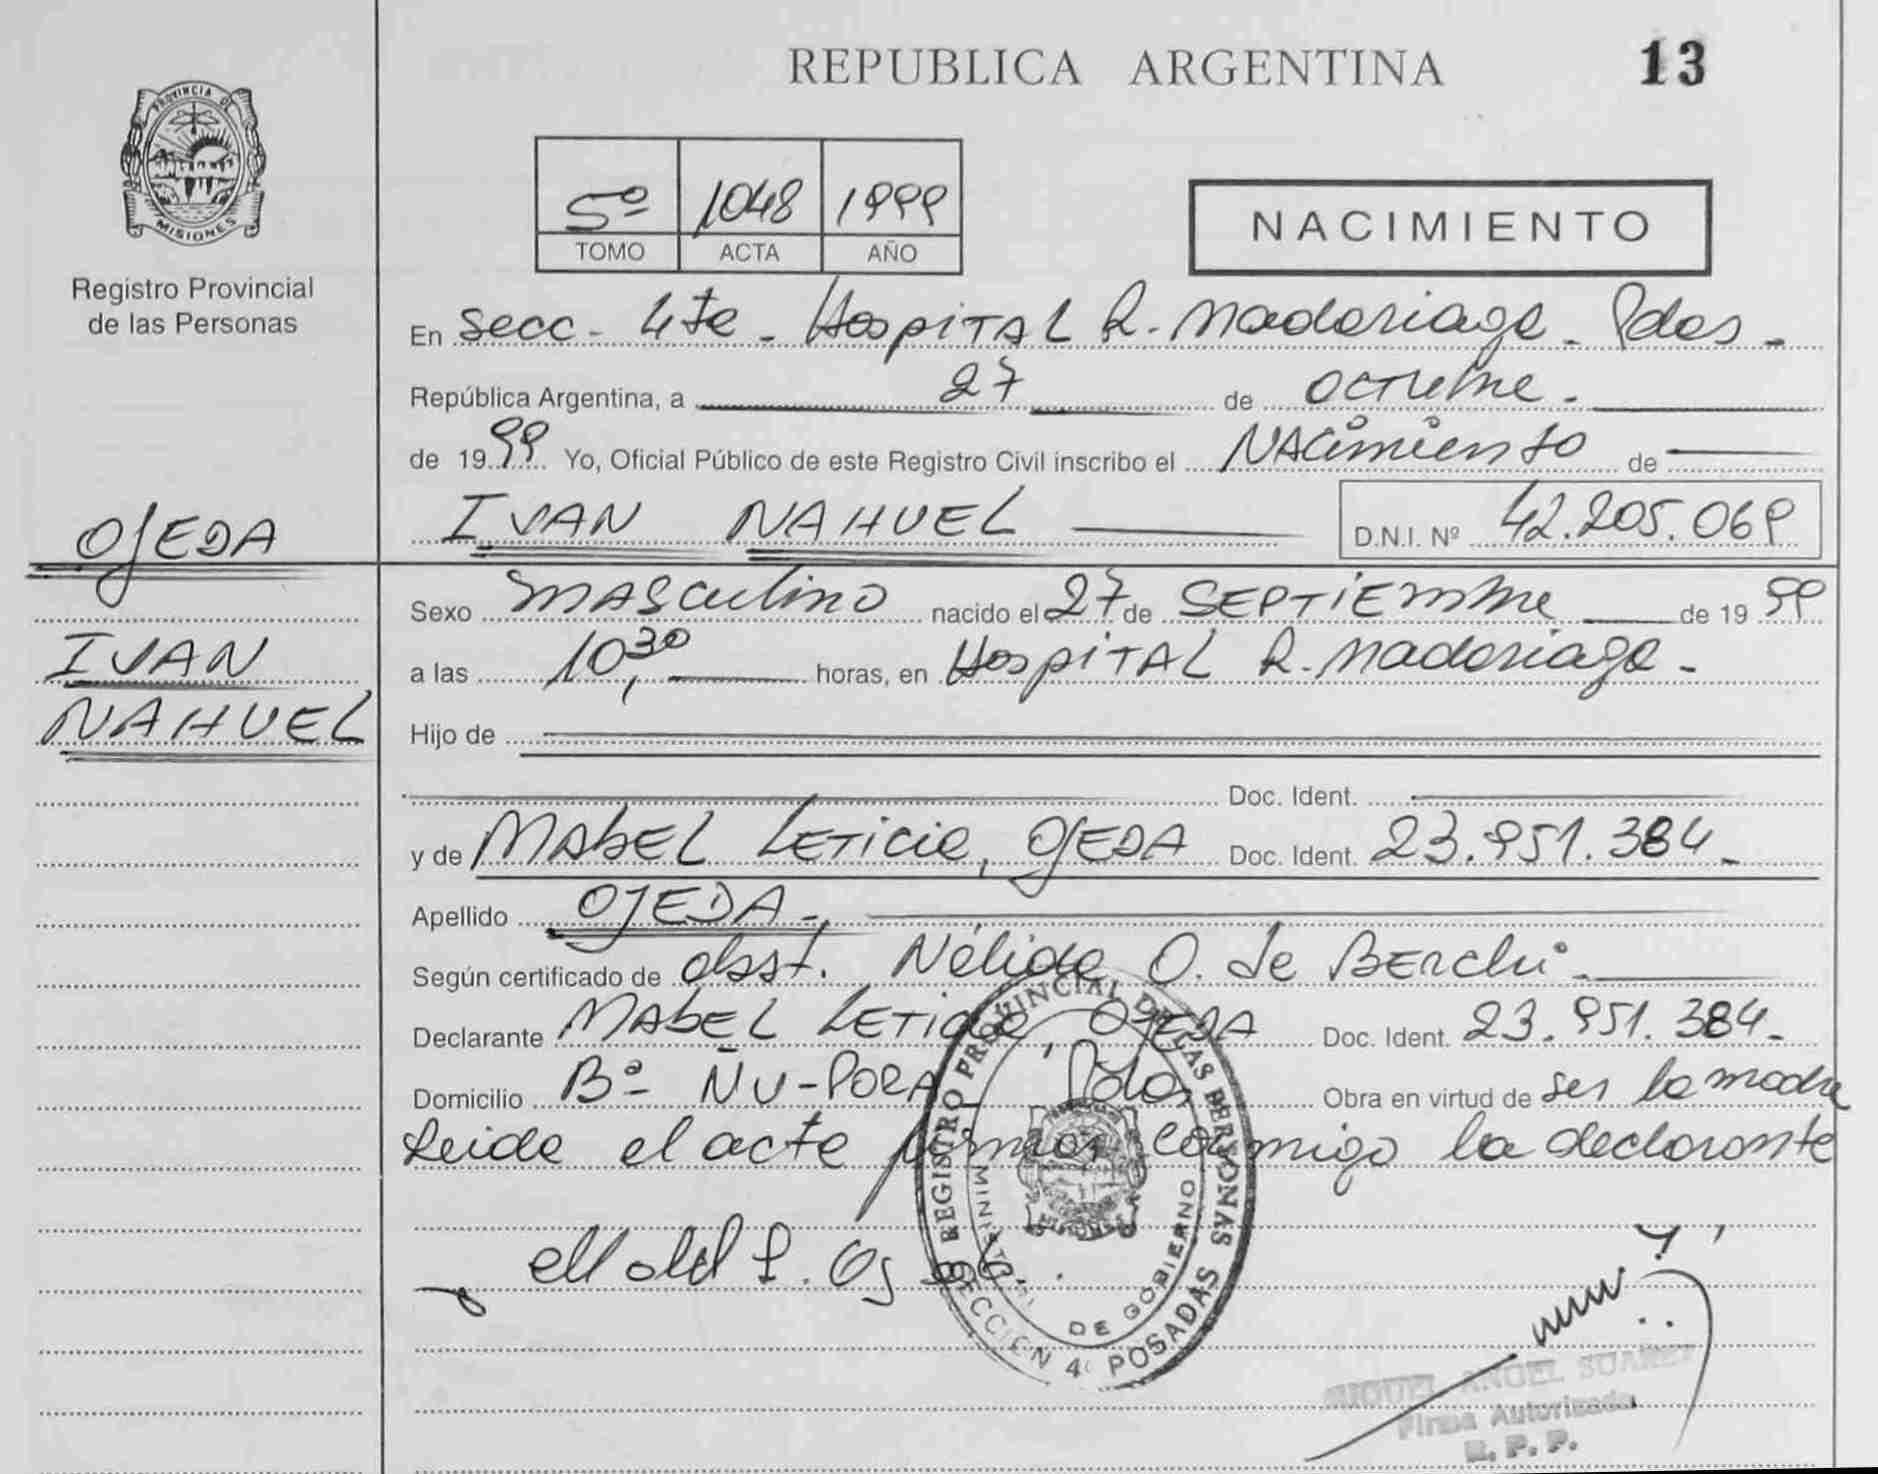 REPUBLICA ARGENTINA
13
PROVINCIA DE
MISIONES
Registro Provincial
de las Personas
5º 1048 1999
TOMO ACTA AÑO
NACIMIENTO
En Secc - 4te - Hospital R. Madariaga - Pdas -
República Argentina, a 27 de octubre -
de 1999 Yo, Oficial Público de este Registro Civil inscribo el Nacimiento de
IVAN NAHUEL D.N.I. Nº 42.205.069
OJEDA
IVAN
NAHUEL
Sexo masculino nacido el 27 de SEPTiEmbre de 1999
a las 10,30 horas, en Hospital R. Madariaga -
Hijo de
Doc. Ident.
y de MAbEL LETicia, OJEDA Doc. Ident. 23.951.384 -
Apellido OJEDA -
Según certificado de obst. Nélida O. de BERchi -
Declarante MAbEL LETicia OJEDA Doc. Ident. 23.951.384 -
Domicilio Bº - ÑU-PORA - Pdas Obra en virtud de ser la madre
Leida el acta firman conmigo la declarante
REGISTRO PROVINCIAL DE LAS PERSONAS
MINISTERIO DE GOBIERNO
SECCION 4ª POSADAS
MIGUEL ANGEL SUAREZ
Firma Autorizada
R. P. P.